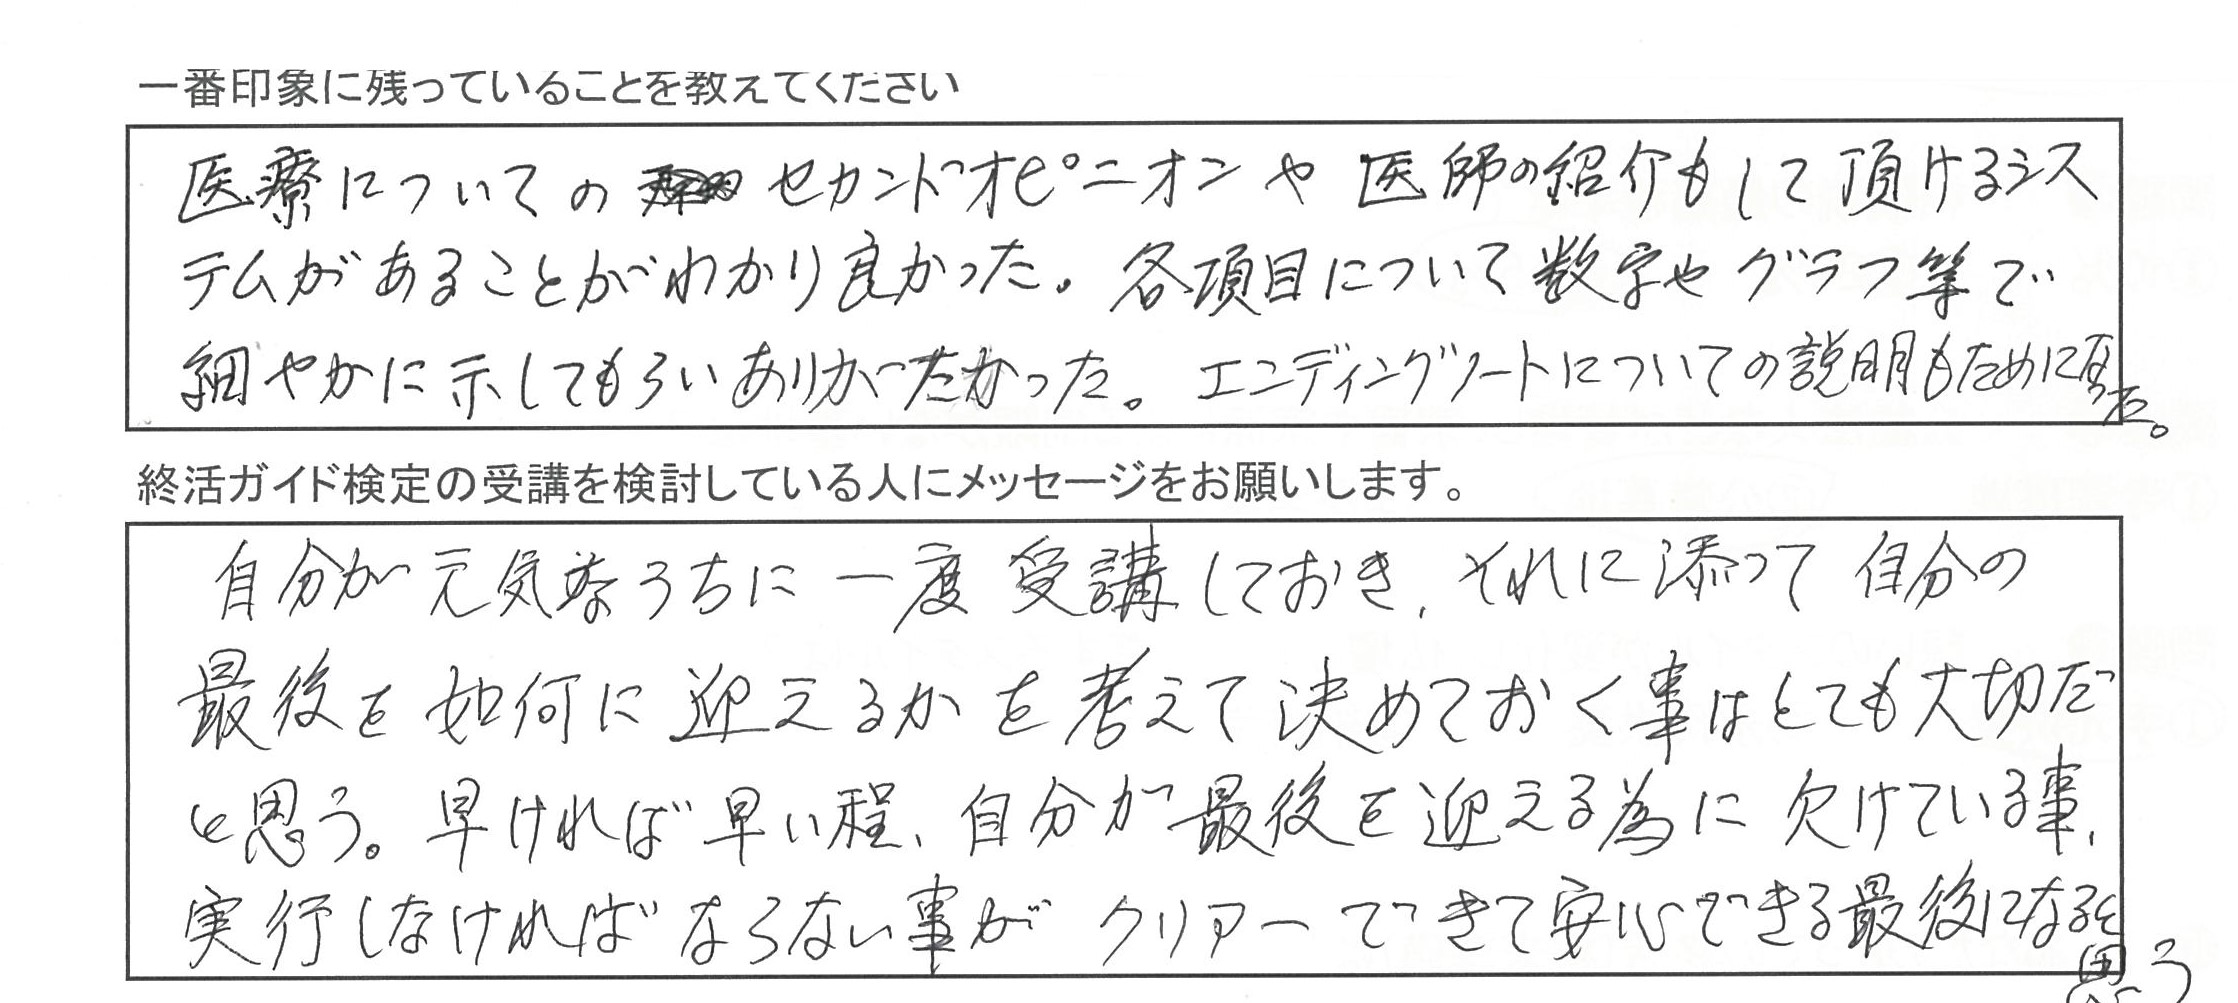 一番印象に残っていることを教えてください
医療についての セカンドオピニオンや 医師の紹介もして頂けるシス
テムがあることがわかり良かった。各項目について数字やグラフ等で
細やかに示してもらいありがたかった。エンディングノートについての説明もために
た。
終活ガイド検定の受講を検討している人にメッセージをお願いします。
自分が元気なうちに一度受講しておき、それに添って自分の
最後を如何に迎えるかを考えて決めておく事はとても大切だ
と思う。早ければ早い程、自分が最後を迎える為に欠けている事、
実行しなければならない事がクリアーできて安心できる最後になると
思う